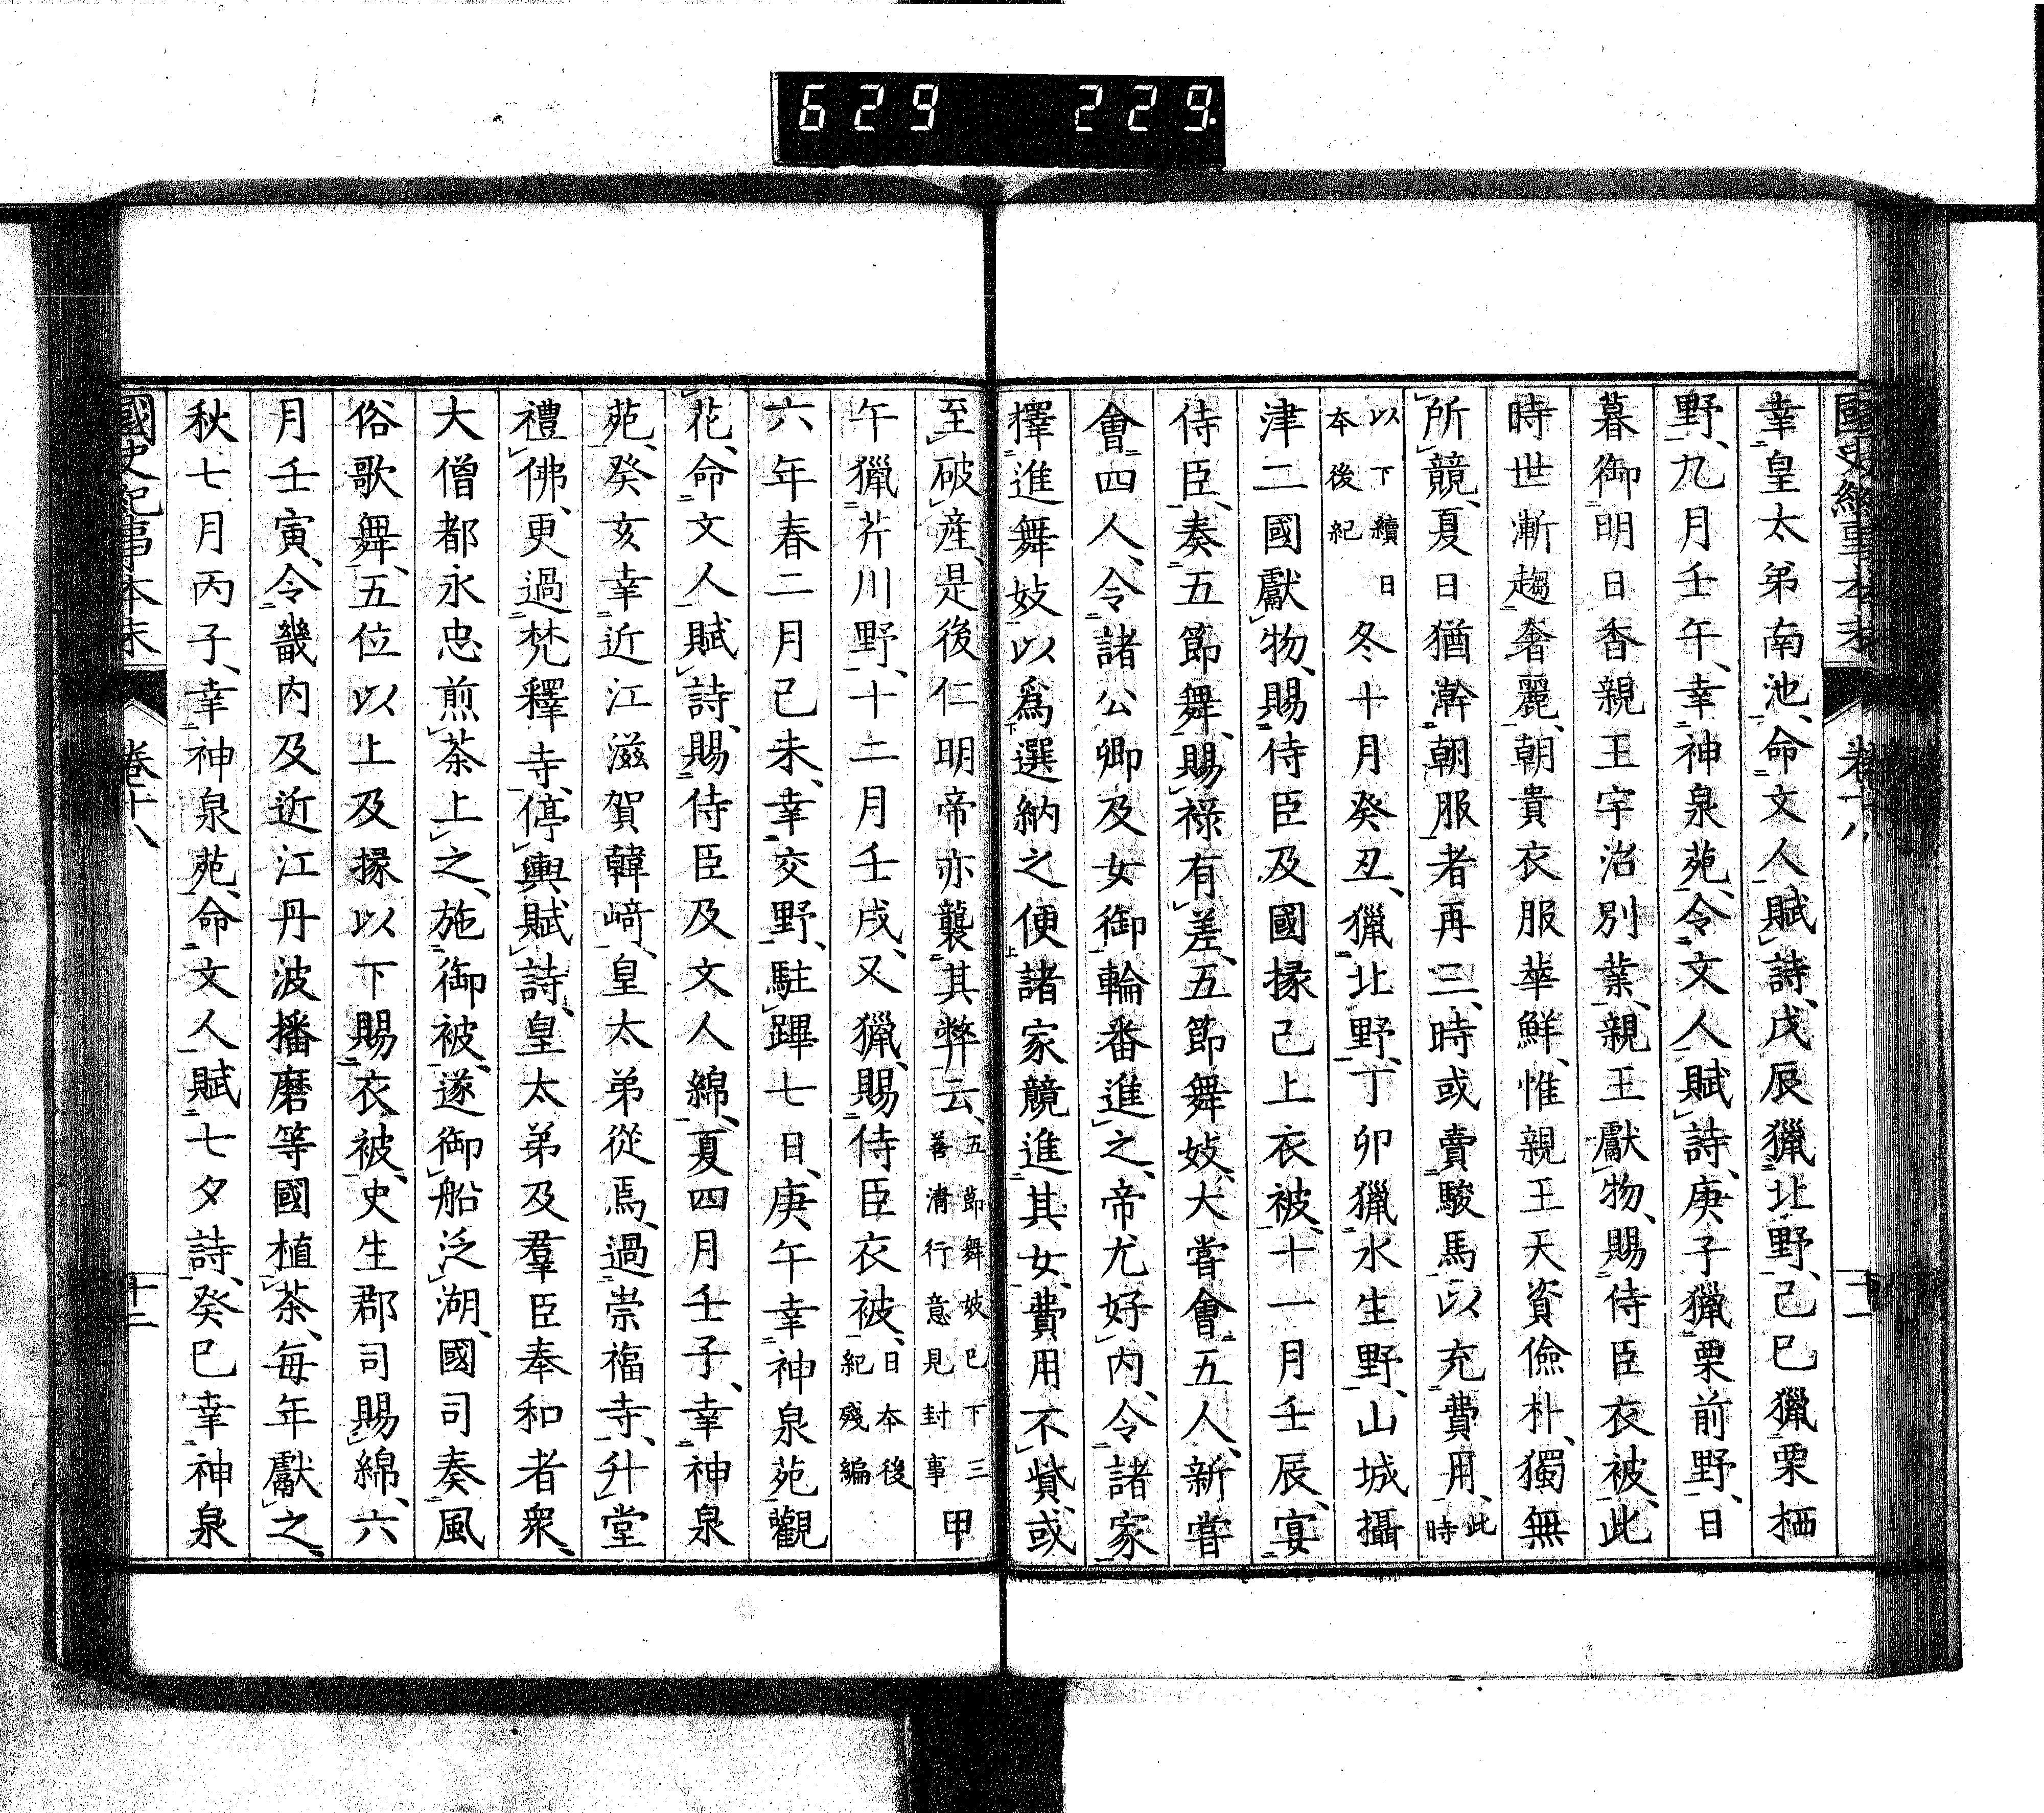 629 229.
國史紀事本末 卷十八 十一
幸皇太弟南池、命文人賦詩、戊辰獵北野、己巳獵栗栖
野、九月壬午、幸神泉苑、令文人賦詩、庚子獵栗前野、日
暮御明日香親王宇治別業、親王獻物、賜侍臣衣被、此
時世漸趨奢麗、朝貴衣服華鮮、惟親王天資儉朴、獨無
所競、夏日猶澣朝服者再三、時或賣駿馬以充費用、此時
以下續日本後紀 冬十月癸丑、獵北野、丁卯獵水生野、山城攝
津二國獻物、賜侍臣及國掾已上衣被、十一月壬辰、宴
侍臣、奏五節舞、賜祿有差、五節舞妓、大嘗會五人、新嘗
會四人、令諸公卿及女御輪番進之、帝尤好內、令諸家
擇進舞妓以爲選納之便諸家競進其女、費用不貲、或
至破產、是後仁明帝亦襲其弊云、五節舞妓已下三善清行意見封事 甲
午獵芹川野、十二月壬戌、又獵、賜侍臣衣被、日本後紀殘編
六年春二月己未、幸交野、駐蹕七日、庚午幸神泉苑觀
花、命文人賦詩、賜侍臣及文人綿、夏四月壬子、幸神泉
苑、癸亥幸近江滋賀韓崎、皇太弟從焉、過崇福寺、升堂
禮佛、更過梵釋寺、停輿賦詩、皇太弟及羣臣奉和者衆、
大僧都永忠煎茶上之、施御被、遂御船泛湖、國司奏風
俗歌舞、五位以上及掾以下賜衣被、史生郡司賜綿、六
月壬寅、令畿内及近江丹波播磨等國植茶、每年獻之、
秋七月丙子、幸神泉苑、命文人賦七夕詩、癸巳幸神泉
國史紀事本末 卷十八 十二